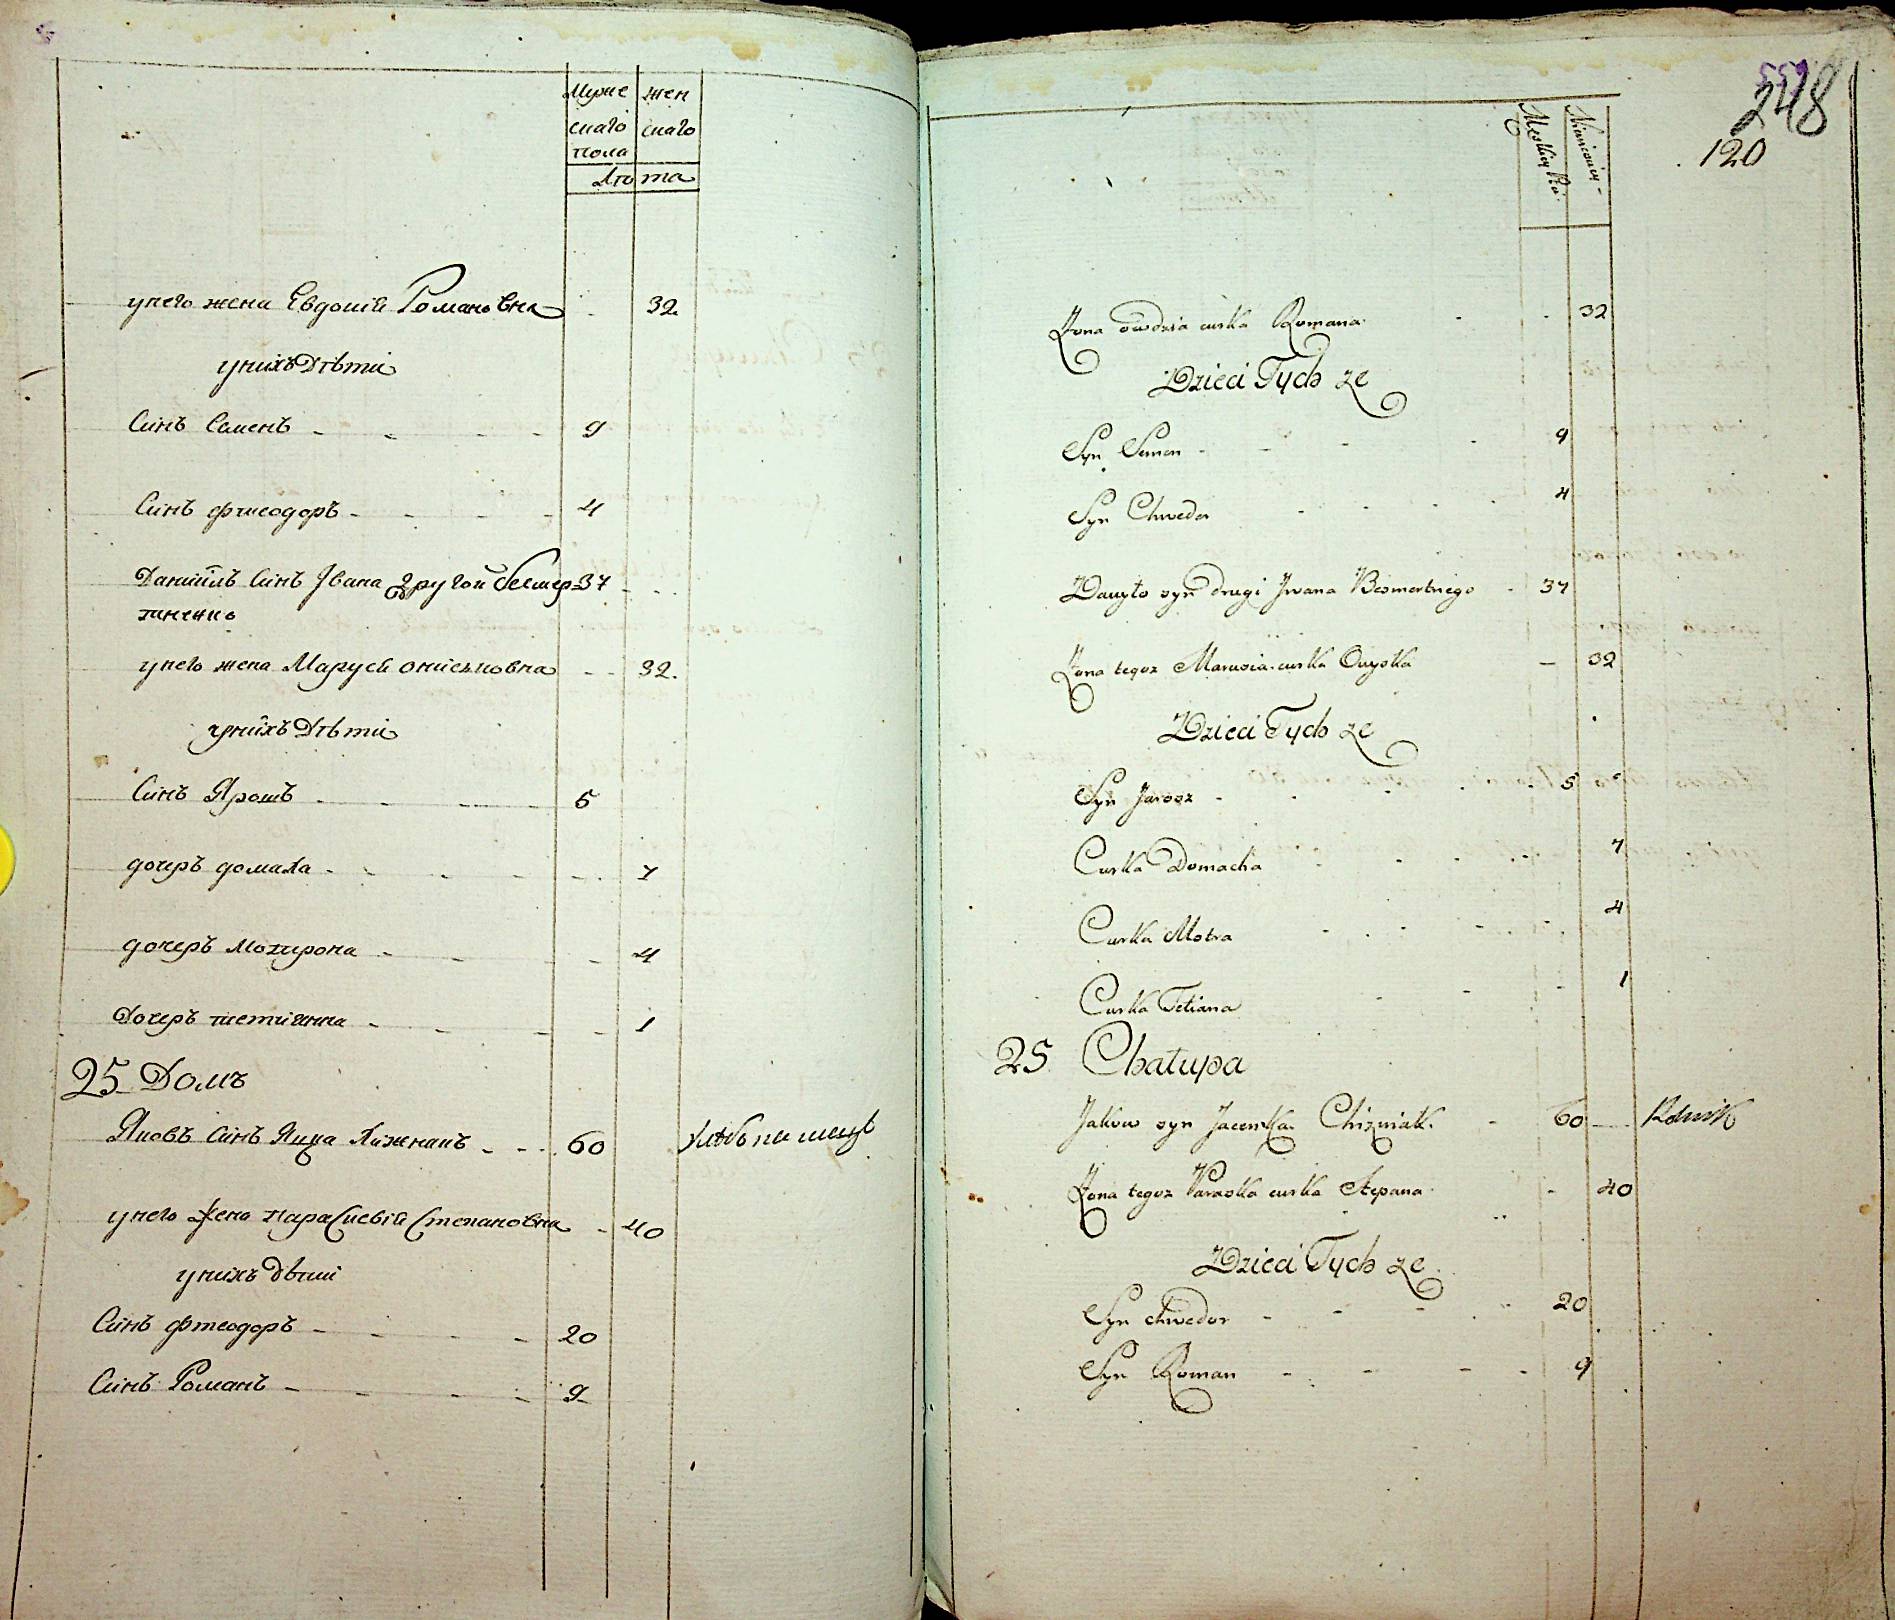 Муже жен
скаго скаго
пола
Лѣта
у него жена Евдокія Романовна 32
у нихъ Дѣти
Синъ Семенъ 9
Синъ Фтеодоръ 4
Даниилъ Синъ Ивана другой бесмер 37
тненко
у него жена Маруся Онисковна 32
у нихъ Дѣти
Синъ Ярошъ 5
дочеръ домаха 7
дочеръ Мотирона 4
Дочеръ тетиянна 1
25 Домъ
Яковъ Синъ Яцка Хижнякъ 60 Хлѣбопашецъ
у него жена Параскевія Степановна 40
у нихъ Дѣти
Синъ Фтеодоръ 20
Синъ Романъ 9
248
120
Żona owdzia curka Romana 32
Dzieci Tych że
Syn Semen 9
Syn Chwedor 4
Danyło syn drugi Jwana Besmertnego 37
Żona tegoz Marusia curka Onyska 32
Dzieci Tych że
Syn Jarosz 5
Curka Domacha 7
Curka Motra 4
Curka Tetiana 1
25 Chałupa
Jakow syn Jacenka Chiżniak 60 Rolnik
Żona tegoz Paraska curka Stepana 40
Dzieci Tych że
Syn Chwedor 20
Syn Roman 9